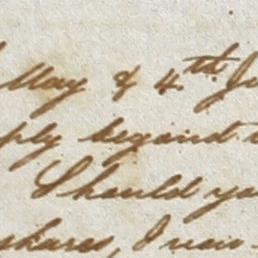 May & 4th Ju
ply beyond
Should yo
shares, I